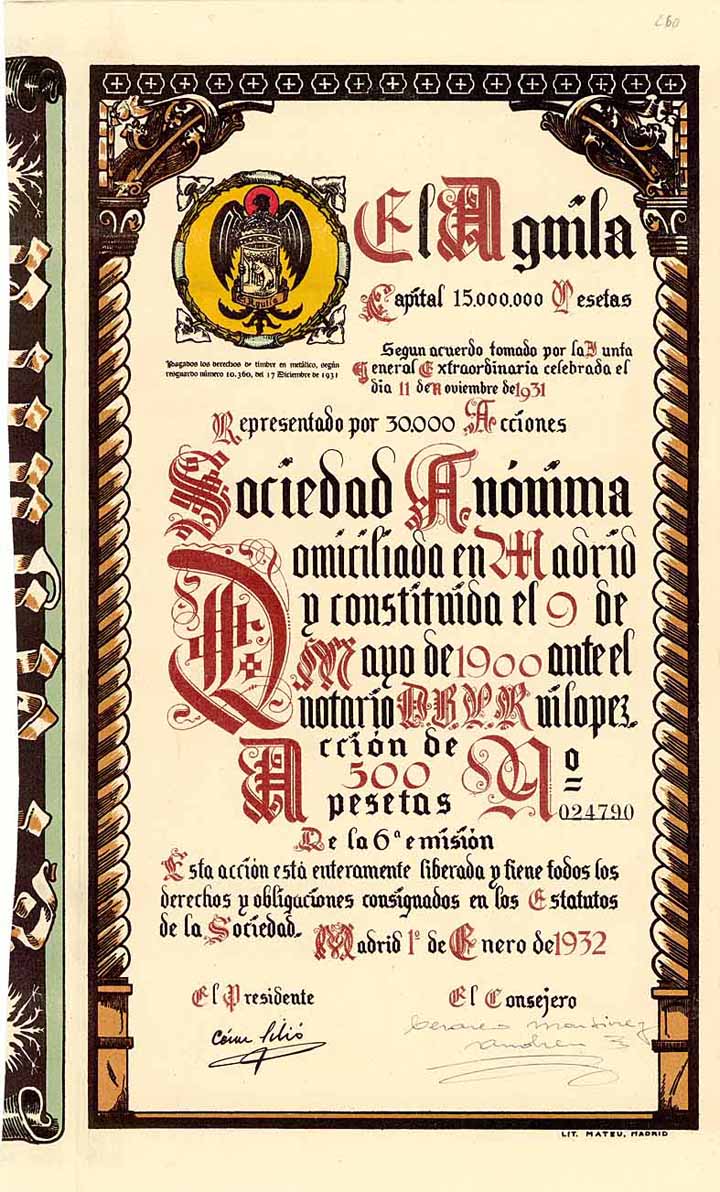 260
El Aguila
Capital 15.000.000 Pesetas
Pagados los derechos de timbre en metálico, según
resguardo número 10.360, del 17 Diciembre de 1931
Segun acuerdo tomado por la Junta
General Extraordinaria celebrada el
dia 11 de Noviembre de 1931
Representado por 30.000 Acciones
Sociedad Anónima
Domiciliada en Madrid
y constituida el 9 de
Mayo de 1900 ante el
notario D. B. V. Ruilopez.
Acción de
500
pesetas
Nº
024790
De la 6ª emisión
Esta acción está enteramente liberada y tiene todos los
derechos y obligaciones consignados en los Estatutos
de la Sociedad.
Madrid 1º de Enero de 1932
El Presidente
El Consejero
LIT. MATEU, MADRID